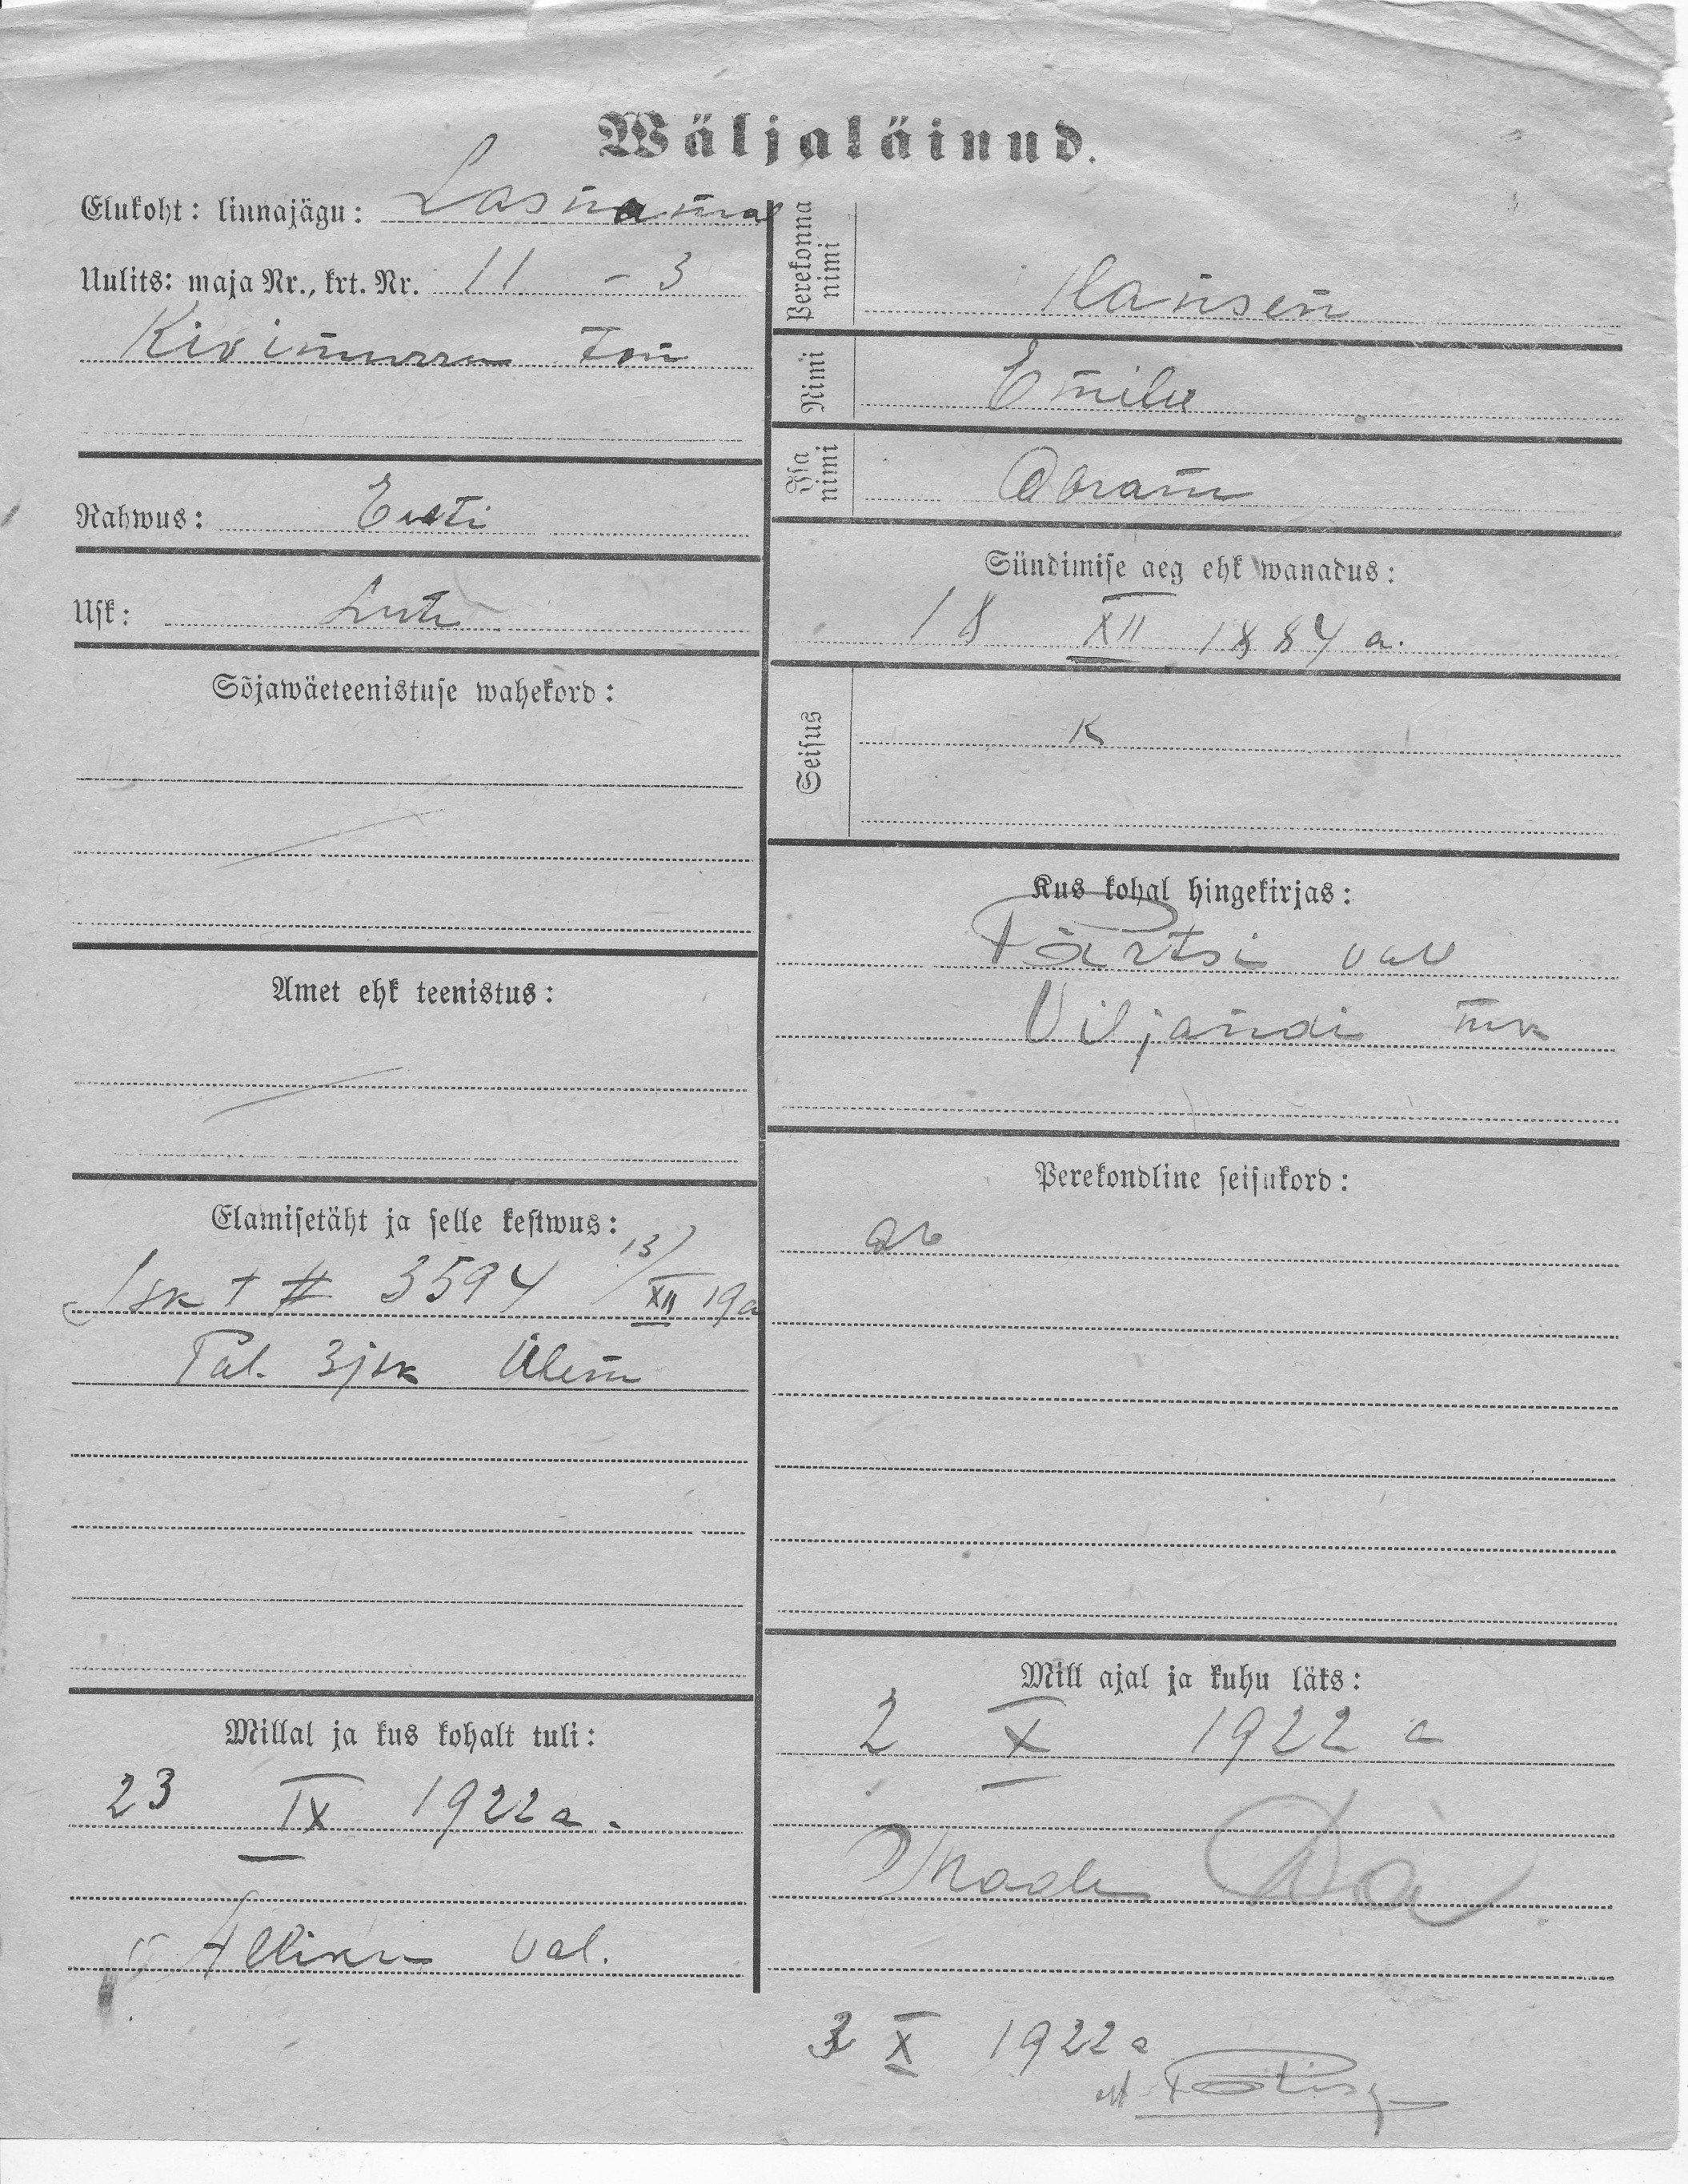 Wäljaläinud.
Elukoht: linnajägu: Lasnamäl
Uulits: maja Nr., krt. Nr. 11 – 3
Kivimurru
Rahwus: Eesti
Usk: Luth
Sõjawäeteenistuse wahekord:
Amet ehk teenistus:
Elamisetäht ja selle kestwus:
Isk t # 3594 13/XII 19a
Tal. 3 jsk Ülem
Millal ja kus kohalt tuli:
23 IX 1922 a.
Alliku val.
Perekonna nimi
Hansen
Nimi
Emilie
Isa nimi
Abram
Sündimise aeg ehk wanadus:
18 XII 1884 a.
Seisus
K
Kus kohal hingekirjas:
Pärtsi val
Viljandi mk
Perekondline seisukord:
ab
Mill ajal ja kuhu läks:
2 X 1922 a
Maale
3 X 1922 a